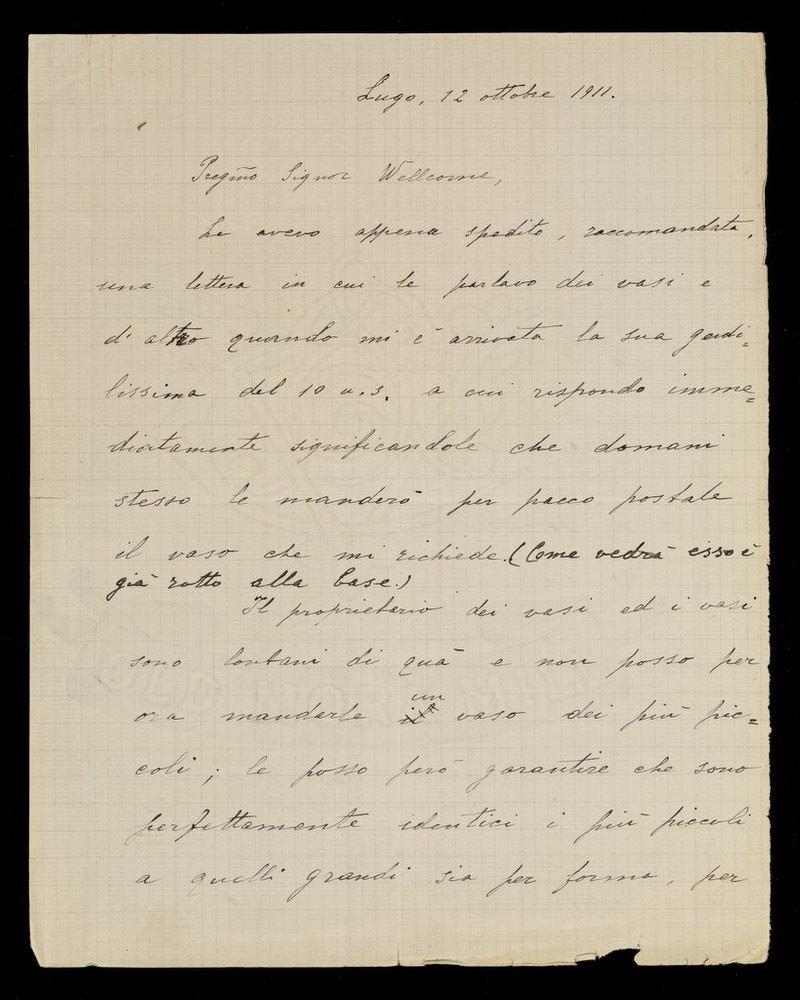 Lugo, 12 ottobre 1911.
Pregmo Signor Wellcome,
Le avevo appena spedito, raccomandata,
una lettera in cui le parlavo dei vasi e
d'altro quando mi è arrivata la sua genti=
lissima del 10 u.s. a cui rispondo imme=
diatamente significandole che domani
stesso le manderò per pacco postale
il vaso che mi richiede. (Come vedrà esso è
già rotto alla base.)
Il proprietario dei vasi ed i vasi
sono lontani di quà e non posso per
ora manderle un vaso dei più pic=
coli; le posso però garantire che sono
perfettamente identici i più piccoli
a quelli grandi sia per forma, per